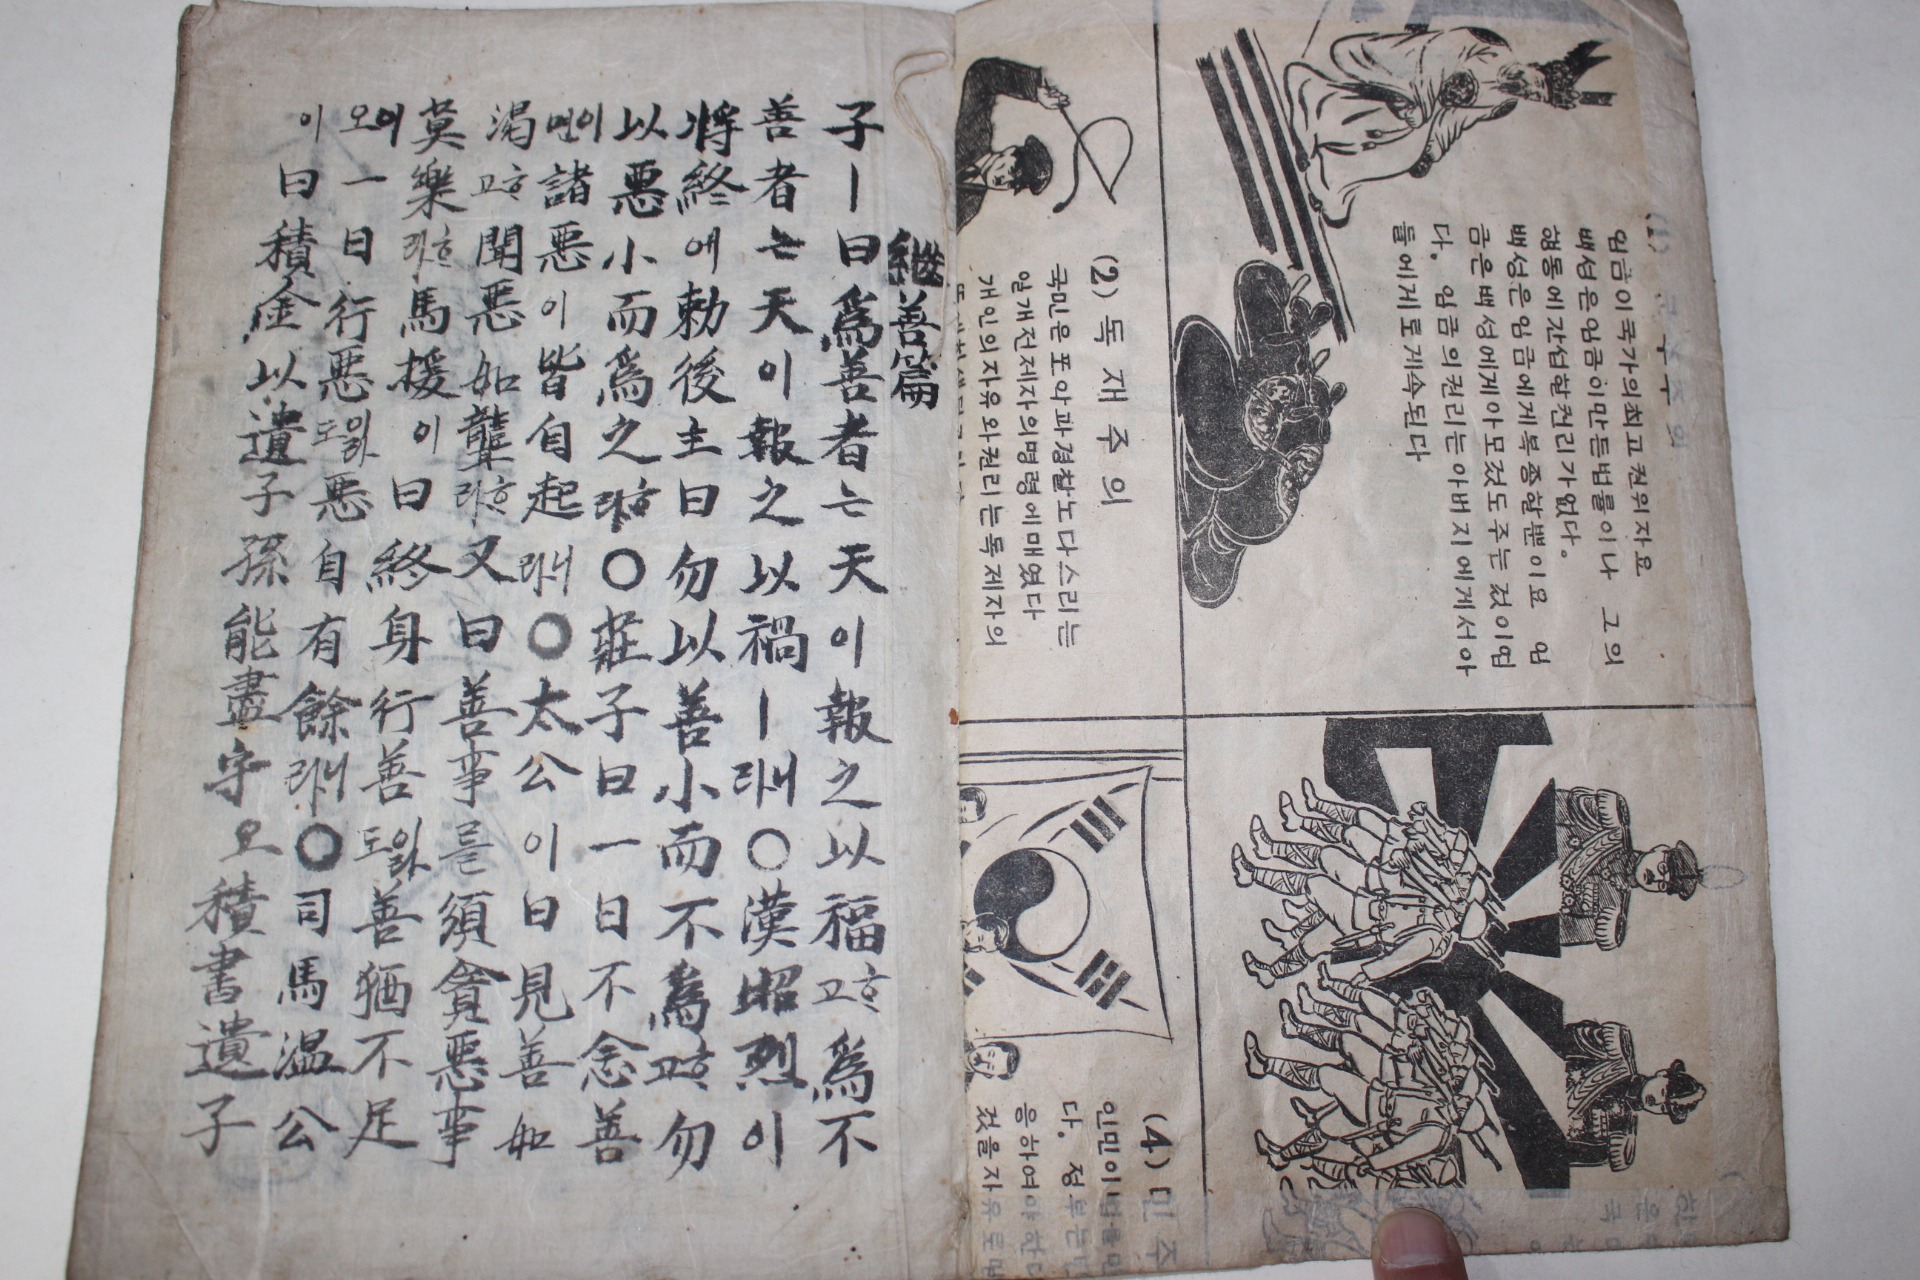 繼善篇
子ㅣ曰爲善者는天이報之以福호고爲不
善者는天이報之以禍ㅣ니라○漢昭烈이
將終에勅後主曰勿以善小而不爲호고勿
以惡小而爲之호라○莊子曰一日不念善
이면諸惡이皆自起니라○太公이曰見善如
渴호고聞惡如聾호라又曰善事를須貪惡事
莫樂호라馬援이曰終身行善이라도善猶不足
이오一日行惡이라도惡自有餘니라○司馬溫公
이曰積金以遺子孫能盡守오積書遺子
임금이국가의최고권위자요
백성은임금이만든법률이나 그의
행동에간섭할권리가없다.
백성은임금에게복종할뿐이요 임
금은백성에게아모것도주는것이없
다. 임금의권리는아버지에게서아
들에게로게속된다
(2) 독재주의
국민은포악과경찰노다스리는
일개전제자의명령에매였다
개인의자유와권리는독제자의
(4) 민주
인민이법을만
다. 정부는
응하여야한다
것을자유로